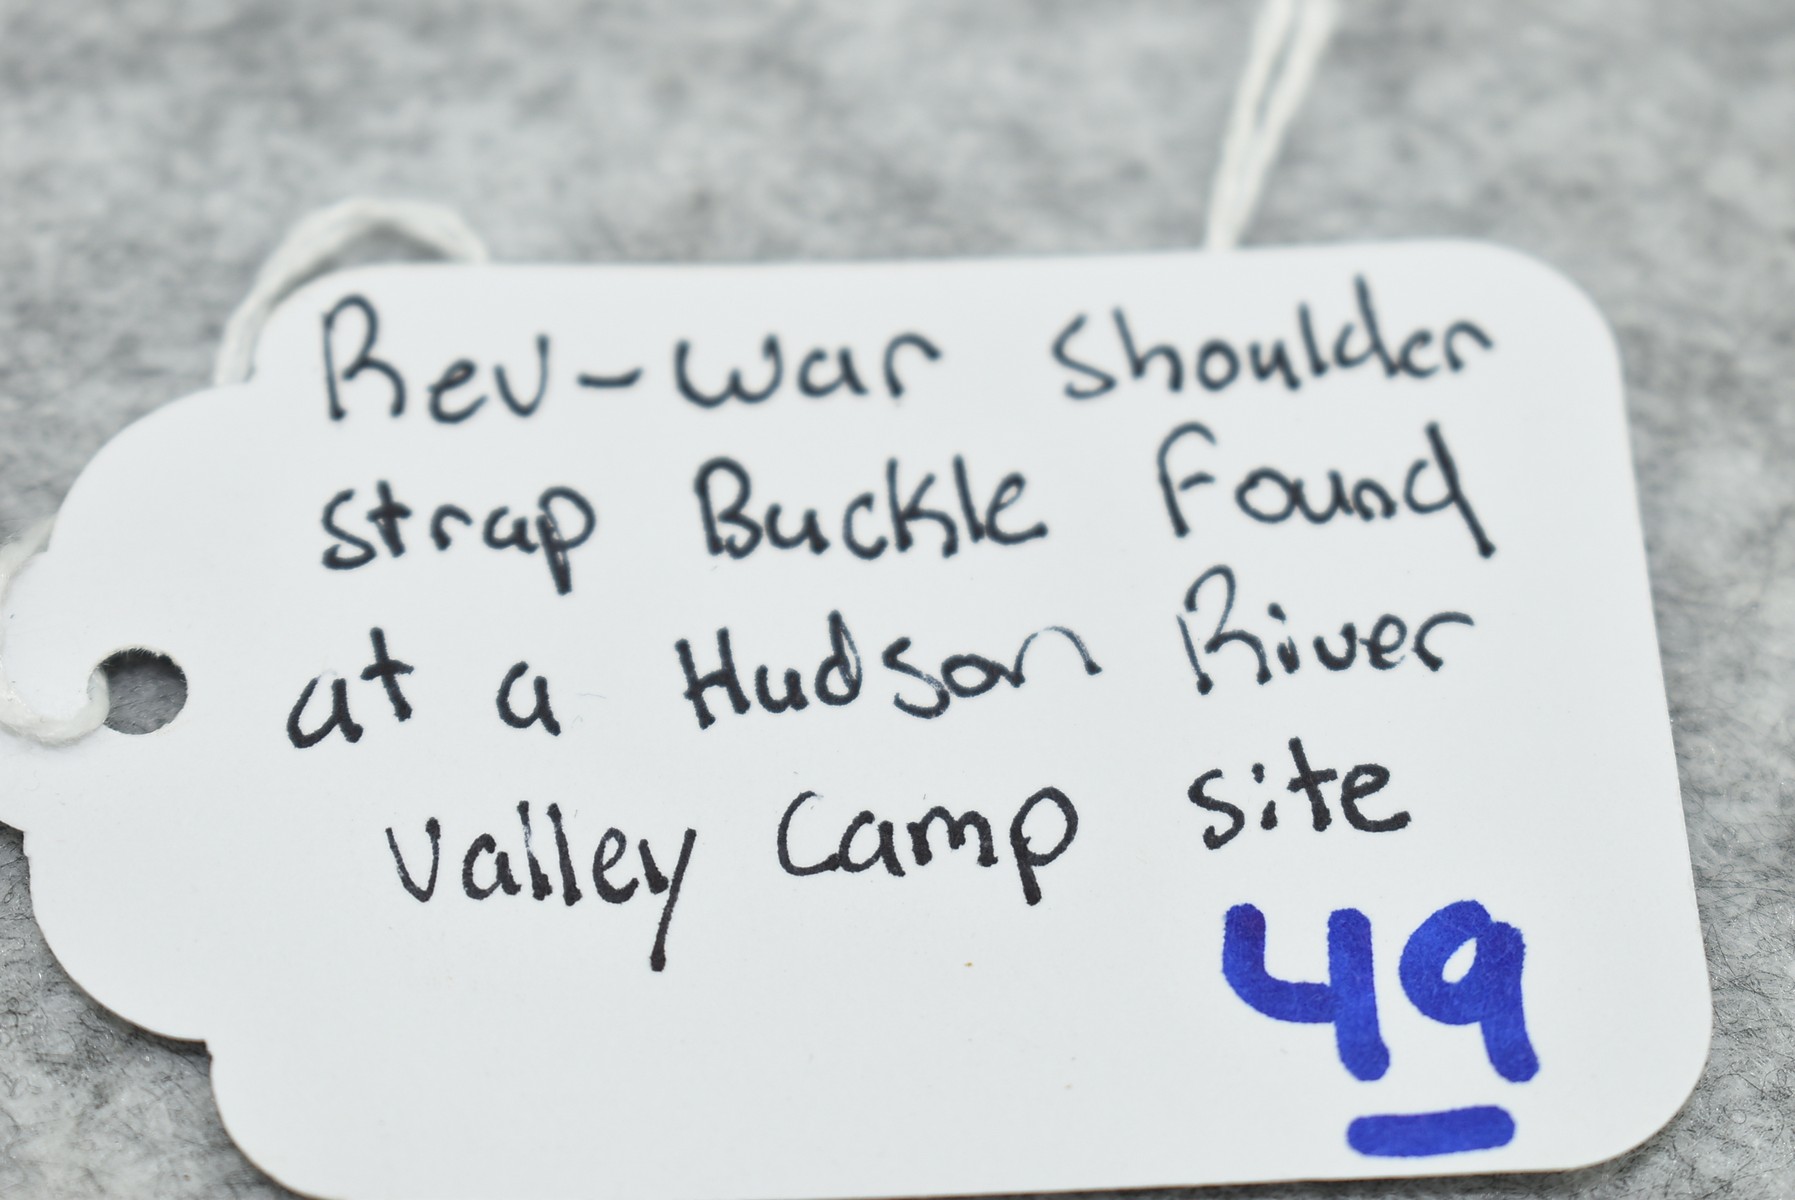 Rev-war shoulder
strap Buckle Found
at a Hudson River
Valley Camp site
49